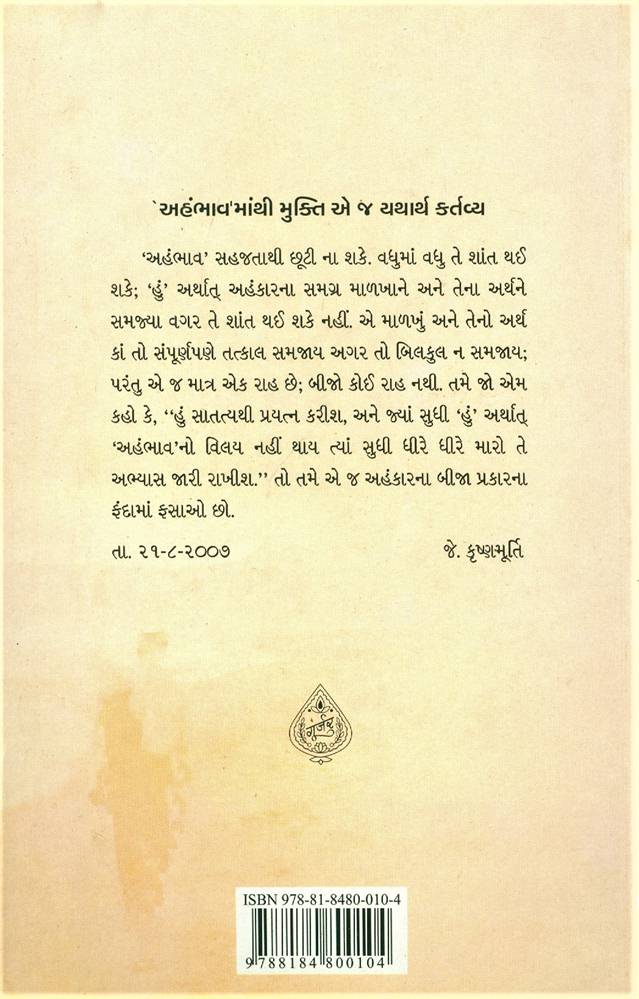 `અહંભાવ'માંથી મુક્તિ એ જ યથાર્થ કર્તવ્ય
‘અહંભાવ’ સહજતાથી છૂટી ના શકે. વધુમાં વધુ તે શાંત થઈ
શકે; ‘હું’ અર્થાત્ અહંકારના સમગ્ર માળખાને અને તેના અર્થને
સમજ્યા વગર તે શાંત થઈ શકે નહીં. એ માળખું અને તેનો અર્થ
કાં તો સંપૂર્ણપણે તત્કાલ સમજાય અગર તો બિલકુલ ન સમજાય;
પરંતુ એ જ માત્ર એક રાહ છે; બીજો કોઈ રાહ નથી. તમે જો એમ
કહો કે, ‘‘હું સાતત્યથી પ્રયત્ન કરીશ, અને જ્યાં સુધી ‘હું’ અર્થાત્
‘અહંભાવ’નો વિલય નહીં થાય ત્યાં સુધી ધીરે ધીરે મારો તે
અભ્યાસ જારી રાખીશ.’’ તો તમે એ જ અહંકારના બીજા પ્રકારના
ફંદામાં ફસાઓ છો.
તા. ૨૧-૮-૨૦૦૭ જે. કૃષ્ણમૂર્તિ
ગૂર્જર
ISBN 978-81-8480-010-4
9 788184 800104